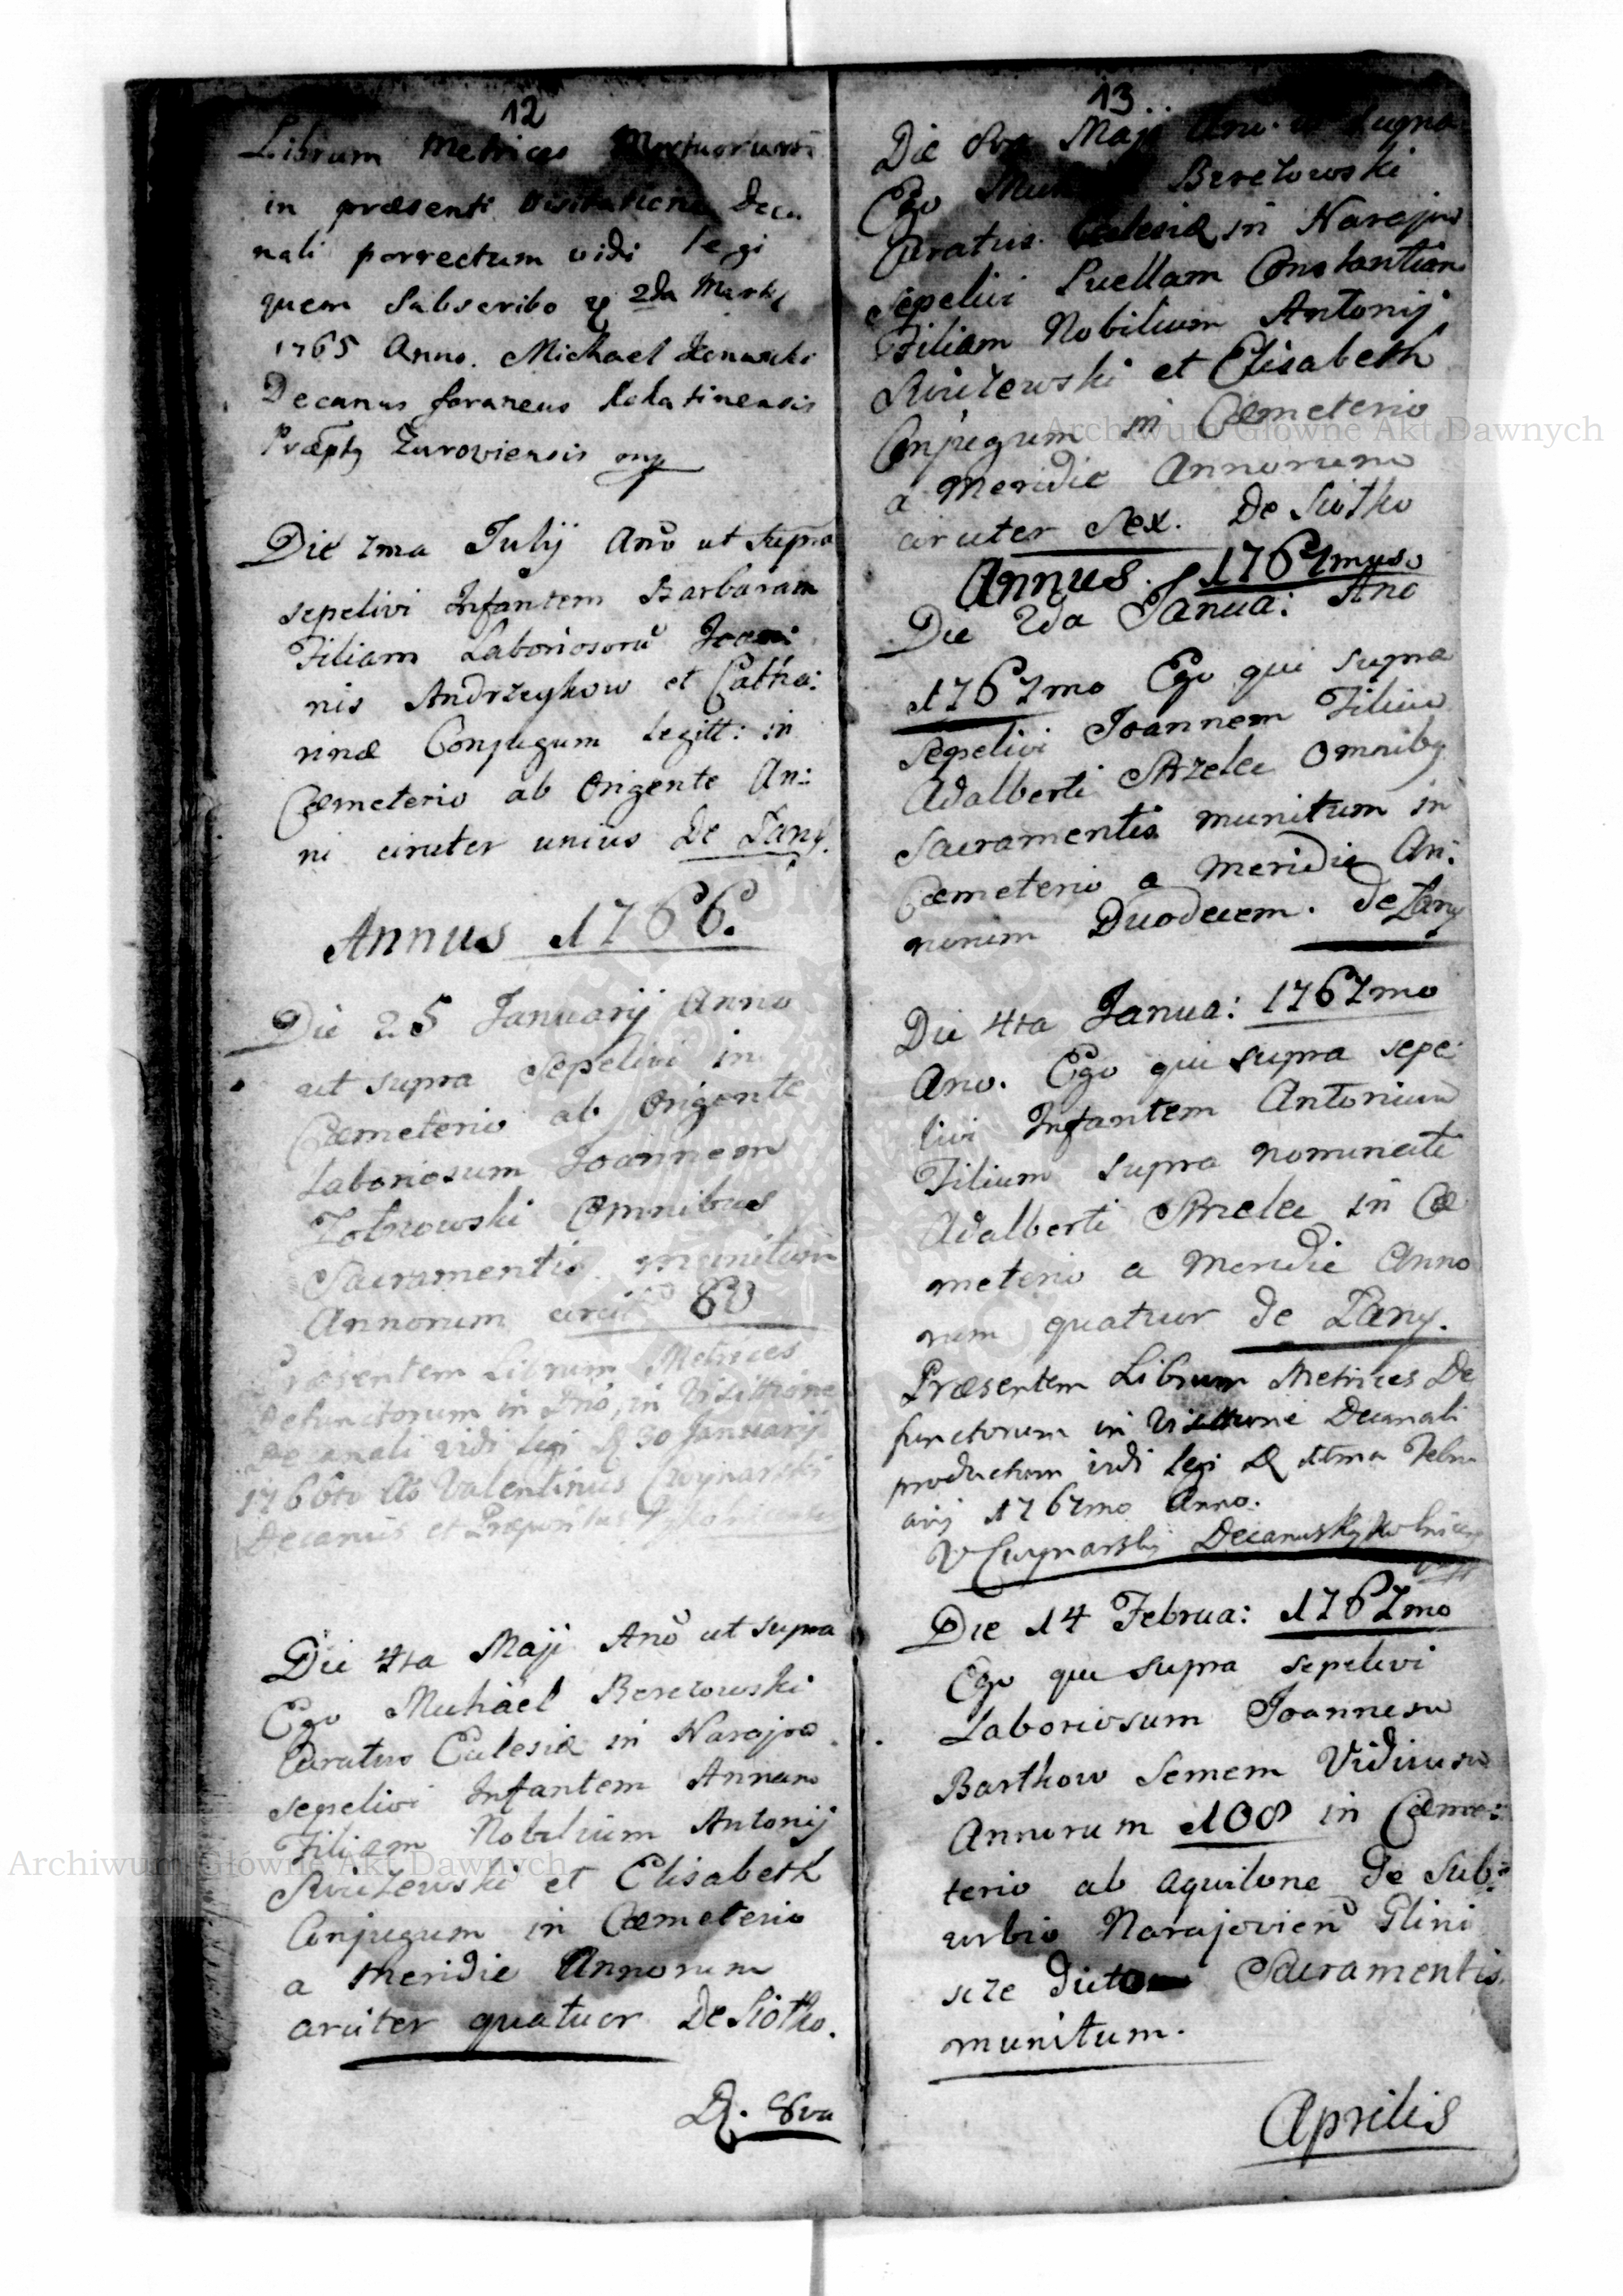 12
Librum Metrices Mortuorum
in præsenti Visitatione Deca
nali porrectum vidi legi
quem Subscribo 2da Martij
1765 Anno. Michael
Decanus foraneus Rohatinensis
Præptg Zuroviensis mp
Die 7ma Julij Ano ut supra
sepelivi Infantem Barbaram
Filiam Laboriosorũ Joan:
nis Andrzeykow et Catha:
rinæ Conjugum legitt: in
Cæmeterio ab Origente An:
ni circiter unius de Lany.
Annus 1766.
Die 25 Januarij Anno
ut supra sepelivi in
Cæmeterio ab Origente
Laboriosum Joannem
Omnibus
Sacramentis munitum
Annorum circit 80
Præsentem Librum Metrices
Defunctorum in Dnô, in Visittione
Decanali vidi legi D 30 Januarij
1766to Ao Valentinus Cwynarski
Decanus et Præpositus
Die 4ta Maji Anõ ut supra
Ego Michael Berezowski
Curatus Eclesiæ in Narajow
sepelivi Infantem Annam
Filiam Nobilium Antonij
et Elisabeth
Conjugum in Cæmeterio
a Meridie Annorum
circiter quatuor De Siołko.
D. 8va
13
Die 8va Maji Ano ut supra
Ego Michael Berezowski
Curatus Eclesiæ in Narajow
sepelivi Puellam Constantiam
Filiam Nobilium Antonij
et Elisabeth
Conjugum in Cæmeterio
a Meridie Annorum
circiter Sex. De Siołko
Annus 1767mus
Die 2da Janua: Ano
1767mo Ego qui supra
sepelivi Joannem Filium
Adalberti Strzelec omnibg
Sacramentis munitum in
Cæmeterio a Meridie An:
norum Duodecem. de Lany
Die 4ta Janua: 1767mo
Ano. Ego qui supra sepe:
livi Infantem Antonium
Filium supra nominati
Adalberti Strzelec in Cæ
meterio a Meridie Anno
rum quatuor de Lany.
Præsentem Librum Metrices De
functorum in Visittione Decanali
productum vidi legi D Febru
arij 1767mo Anno.
V Cwynarski Decanus
Die 14 Februa: 1767mo
Ego qui supra sepelivi
Laboriosum Joannem
Barthow Senem Viduum
Annorum 108 in Cæme:
terio ab aquilone de Sub:
urbio Narajovien Glini
scze dicto Sacramentis
munitum.
Aprilis
Archiwum Główne Akt Dawnych
Archiwum Główne Akt Dawnych